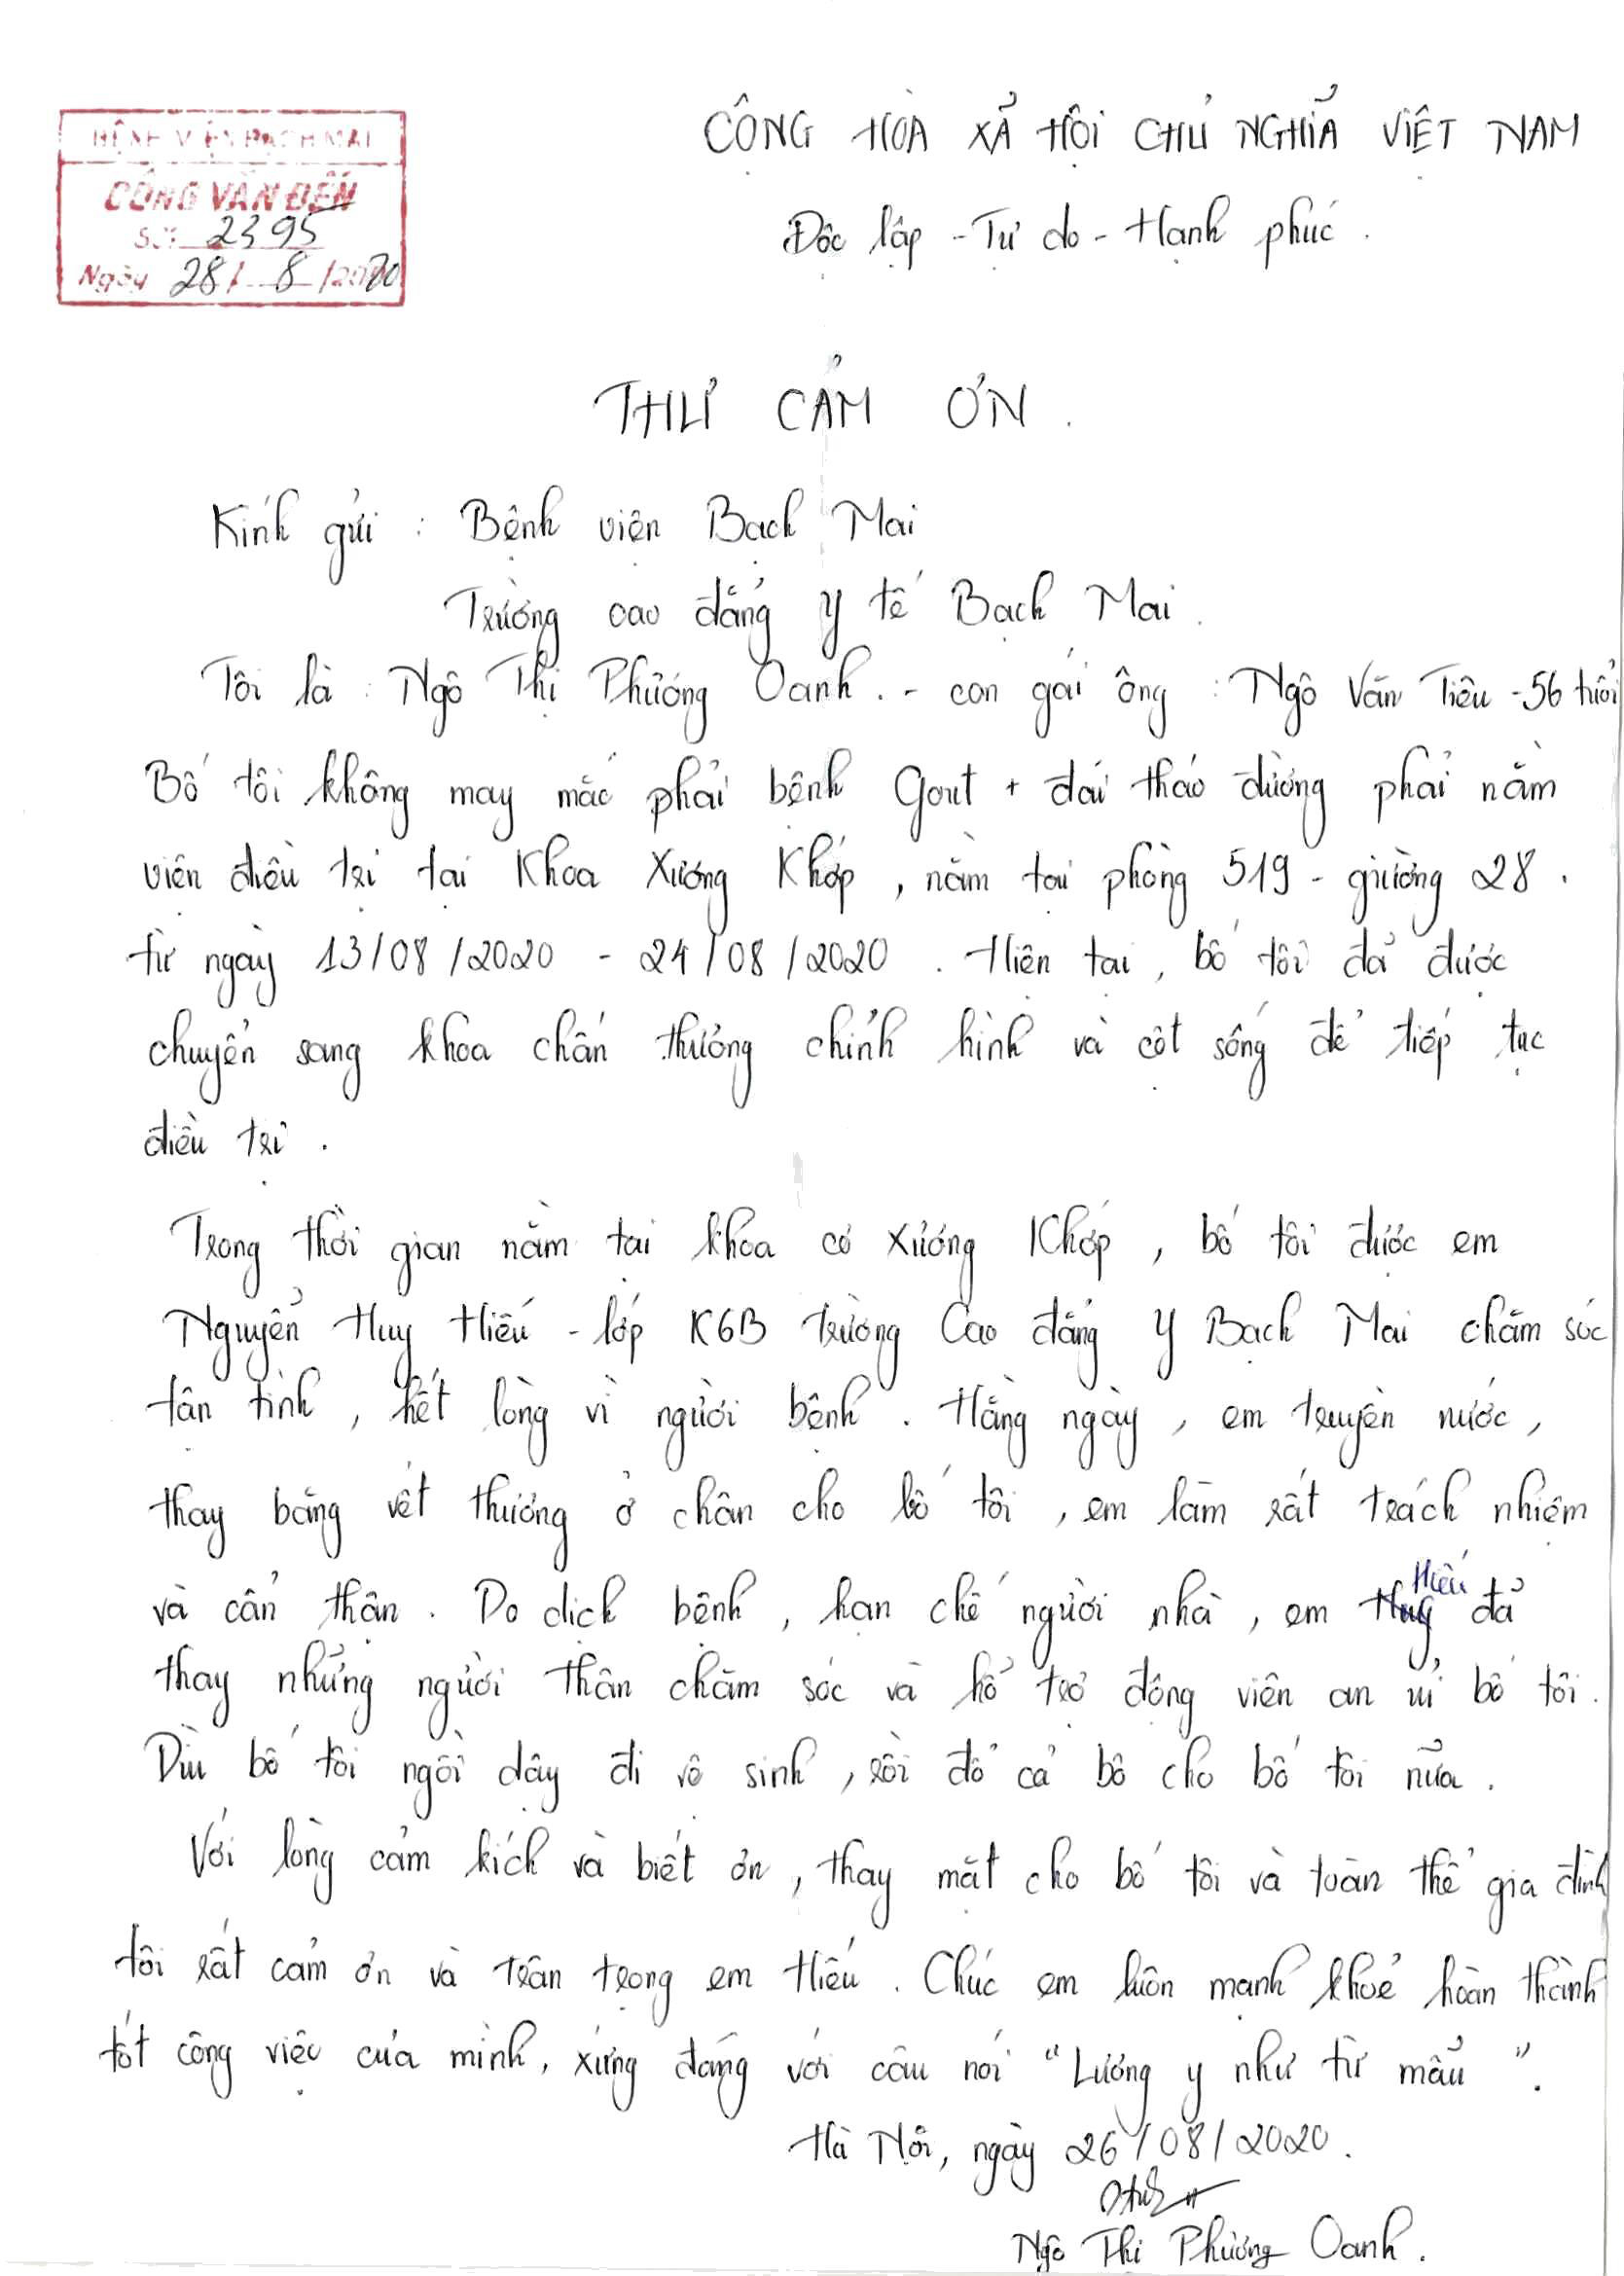 BỆNH VIỆN BẠCH MAI
CÔNG VĂN ĐẾN
Số: 2395
Ngày 28/ 8 /2020
CỘNG HÒA XÃ HỘI CHỦ NGHĨA VIỆT NAM
Độc lập - Tự do - Hạnh phúc.
THƯ CẢM ƠN.
Kính gửi : Bệnh viện Bạch Mai
Trường cao đẳng y tế Bạch Mai.
Tôi là : Ngô Thị Phương Oanh. - con gái ông : Ngô Văn Tiêu - 56 tuổi
Bố tôi không may mắc phải bệnh Gout + đái tháo đường phải nằm
viện điều trị tại Khoa Xương Khớp, nằm tại phòng 519 - giường 28.
từ ngày 13/08/2020 - 24/08/2020. Hiện tại, bố tôi đã được
chuyển sang khoa chấn thương chỉnh hình và cột sống để tiếp tục
điều trị.
Trong thời gian nằm tại khoa cơ Xương Khớp, bố tôi được em
Nguyễn Huy Hiếu - lớp K6B trường Cao đẳng Y Bạch Mai chăm sóc
tận tình, hết lòng vì người bệnh. Hằng ngày, em truyền nước,
thay băng vết thương ở chân cho bố tôi, em làm rất trách nhiệm
và cẩn thận. Do dịch bệnh, hạn chế người nhà, em Hiếu đã
thay những người thân chăm sóc và hỗ trợ động viên an ủi bố tôi.
Dìu bố tôi ngồi dậy đi vệ sinh, rồi đổ cả bô cho bố tôi nữa.
Với lòng cảm kích và biết ơn, thay mặt cho bố tôi và toàn thể gia đình
tôi rất cảm ơn và trân trọng em Hiếu. Chúc em luôn mạnh khoẻ hoàn thành
tốt công việc của mình, xứng đáng với câu nói "Lương y như từ mẫu".
Hà Nội, ngày 26/08/2020.
Ngô Thị Phương Oanh.